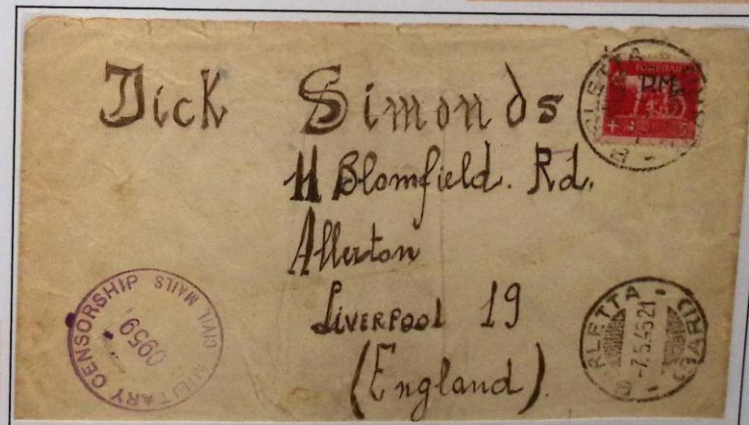 Dick Simonds
11 Blomfield. Rd.
Allerton
LIVERPOOL 19
(England)
P.M.
BARLETTA
(BARI)
-7.5.46 21
MILITARY CENSORSHIP
CIVIL MAILS
0959